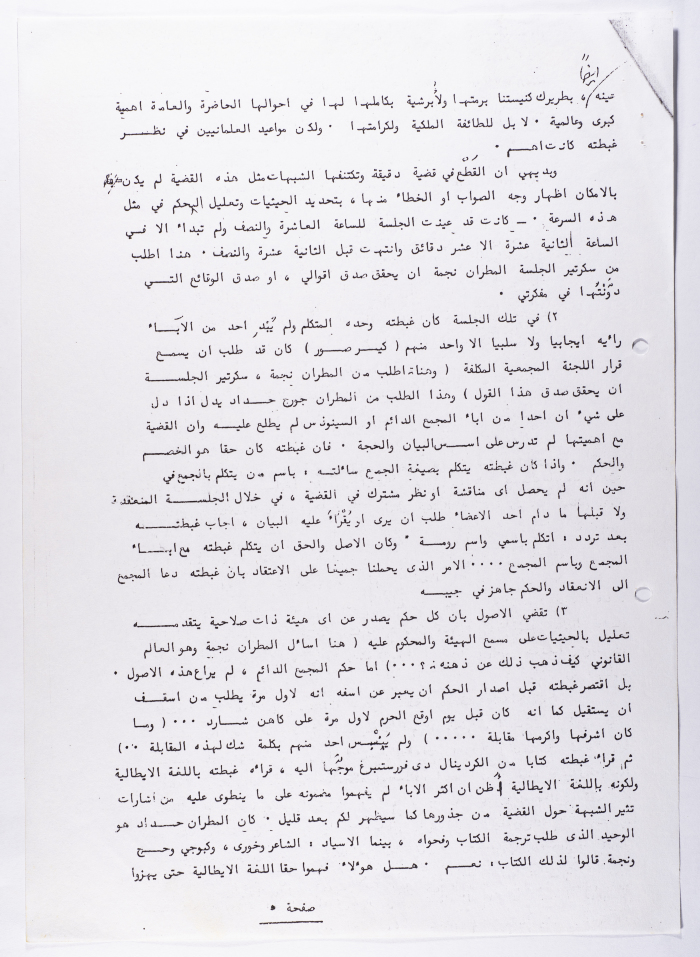 ايضاً
عينه ، بطريرك كنيستنا برمتها ولأبرشية بكاملها لها في احوالها الحاضرة والعامة اهمية
كبرى وعالمية ٠ لا بل للطائفة الملكية ولكرامتها ٠ ولكن مواعيد العلمانيين في نظر
غبطته كانت اهم ٠
وبديهي ان القَطْع في قضية دقيقة وتكتنفها الشبهات مثل هذه القضية لم يكن
بالامكان اظهار وجه الصواب او الخطاء منها ، بتحديد الحيثيات وتعليل الحكم في مثل
هذه السرعة ٠ ـ كانت قد عينت الجلسة للساعة العاشرة والنصف ولم تبداء الا في
الساعة الثانية عشرة الا عشر دقائق وانتهت قبل الثانية عشرة والنصف ٠ هذا اطلب
من سكرتير الجلسة المطران نجمة ان يحقق صدق اقوالي ، او صدق الوقائع التي
دوَّنْتُها في مفكرتي ٠
٢) في تلك الجلسة كان غبطته وحده المتكلم ولم يُبْدِ احد من الآباء
راءيه ايجابيا ولا سلبيا الا واحد منهم ( كير صور ) كان قد طلب ان يسمع
قرار اللجنة المجمعية المكلفة ( وهنا اطلب من المطران نجمة ، سكرتير الجلسة
ان يحقق صدق هذا القول ) وهذا الطلب من المطران جورج حداد يدل اذا دل
على شيء ان احدا من اباء المجمع الدائم او السينودس لم يطلع عليه وان القضية
مع اهميتها لم تدرس على اسس البيان والحجة ٠ فان غبطته كان حقا هو الخصم
والحكم ٠ واذا كان غبطته يتكلم بصيغة الجمع ساءلته : باسم من يتكلم بالجمع في
حين انه لم يحصل اى مناقشة او نظر مشترك في القضية ، في خلال الجلسة المنعقدة
ولا قبلها ما دام احد الاعضاء طلب ان يرى او يُقْرَاءَ عليه البيان ، اجاب غبطته
بعد تردد : اتكلم باسمي واسم رومة ٠ وكان الاصل والحق ان يتكلم غبطته مع ابناء
المجمع وباسم المجمع ٠٠٠٠ الامر الذى يحملنا جميعا على الاعتقاد بان غبطته دعا المجمع
الى الانعقاد والحكم جاهز في جيبه
٣) تقضي الاصول بان كل حكم يصدر عن اى هيئة ذات صلاحية يتقدمه
تعليل بالحيثيات على مسمع الهيئة والمحكوم عليه ( هنا اساءل المطران نجمة وهو العالم
القانوني كيف ذهب ذلك عن ذهنه ؟ ٠٠٠) اما حكم المجمع الدائم ، لم يراع هذه الاصول ٠
بل اقتصر غبطته قبل اصدار الحكم ان يعبر عن اسفه انه لاول مرة يطلب من اسقف
ان يستقيل كما انه كان قبل يوم اوقع الحرم لاول مرة على كاهن شارد ٠٠٠ ( وما
كان اشرفها واكرمها مقابلة ٠٠٠٠٠ ) ولم يَنْبِس احد منهم بكلمة شك لهذه المقابلة ٠٠)
ثم قراء غبطته كتابا من الكردينال دى فورستنبرغ موجَّها اليه ، قراءه غبطته باللغة الايطالية
ولكونه باللغة الايطالية أظن ان اكثر الاباء لم يفهموا مضمونه على ما ينطوى عليه من اشارات
تثير الشبهة حول القضية من جذورها كما سيظهر لكم بعد قليل ٠ كان المطران حداد هو
الوحيد الذى طلب ترجمة الكتاب وفحواه ، بينما الاسياد : الشاعر وخورى ، وكبوجي وحج
ونجمة قالوا لذلك الكتاب : نعم ٠ هل هوءلاء فهموا حقا اللغة الايطالية حتى يهزوا
صفحة ٥